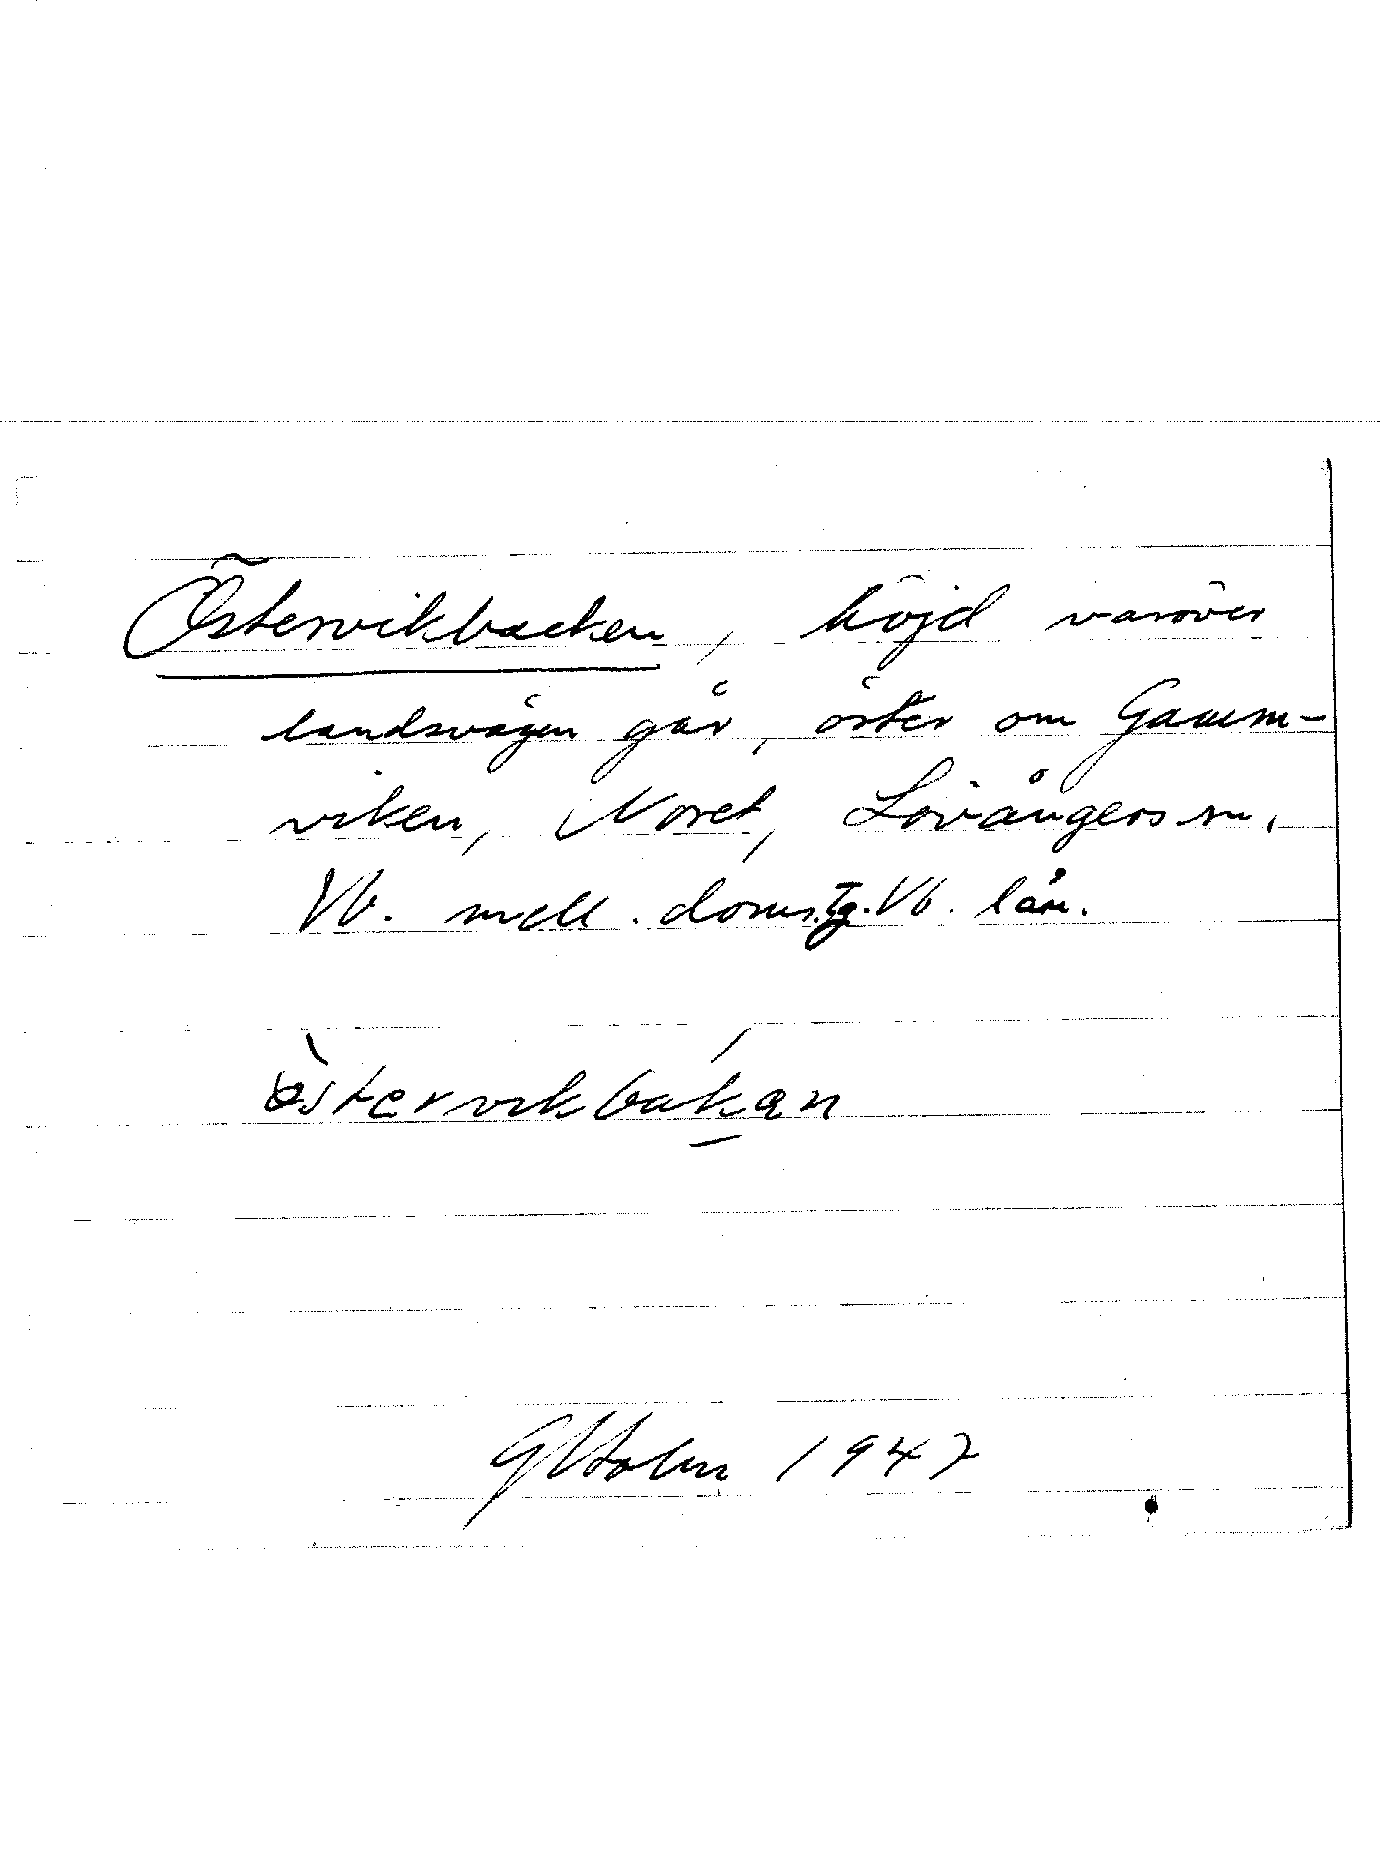 Östervikbacken, höjd varöver
landsvägen går, öster om Gamm-
viken, Noret, Lövångers sn,
Vb. mell. doms.tg. Vb. län.
östervikbakan
GHolm 1947